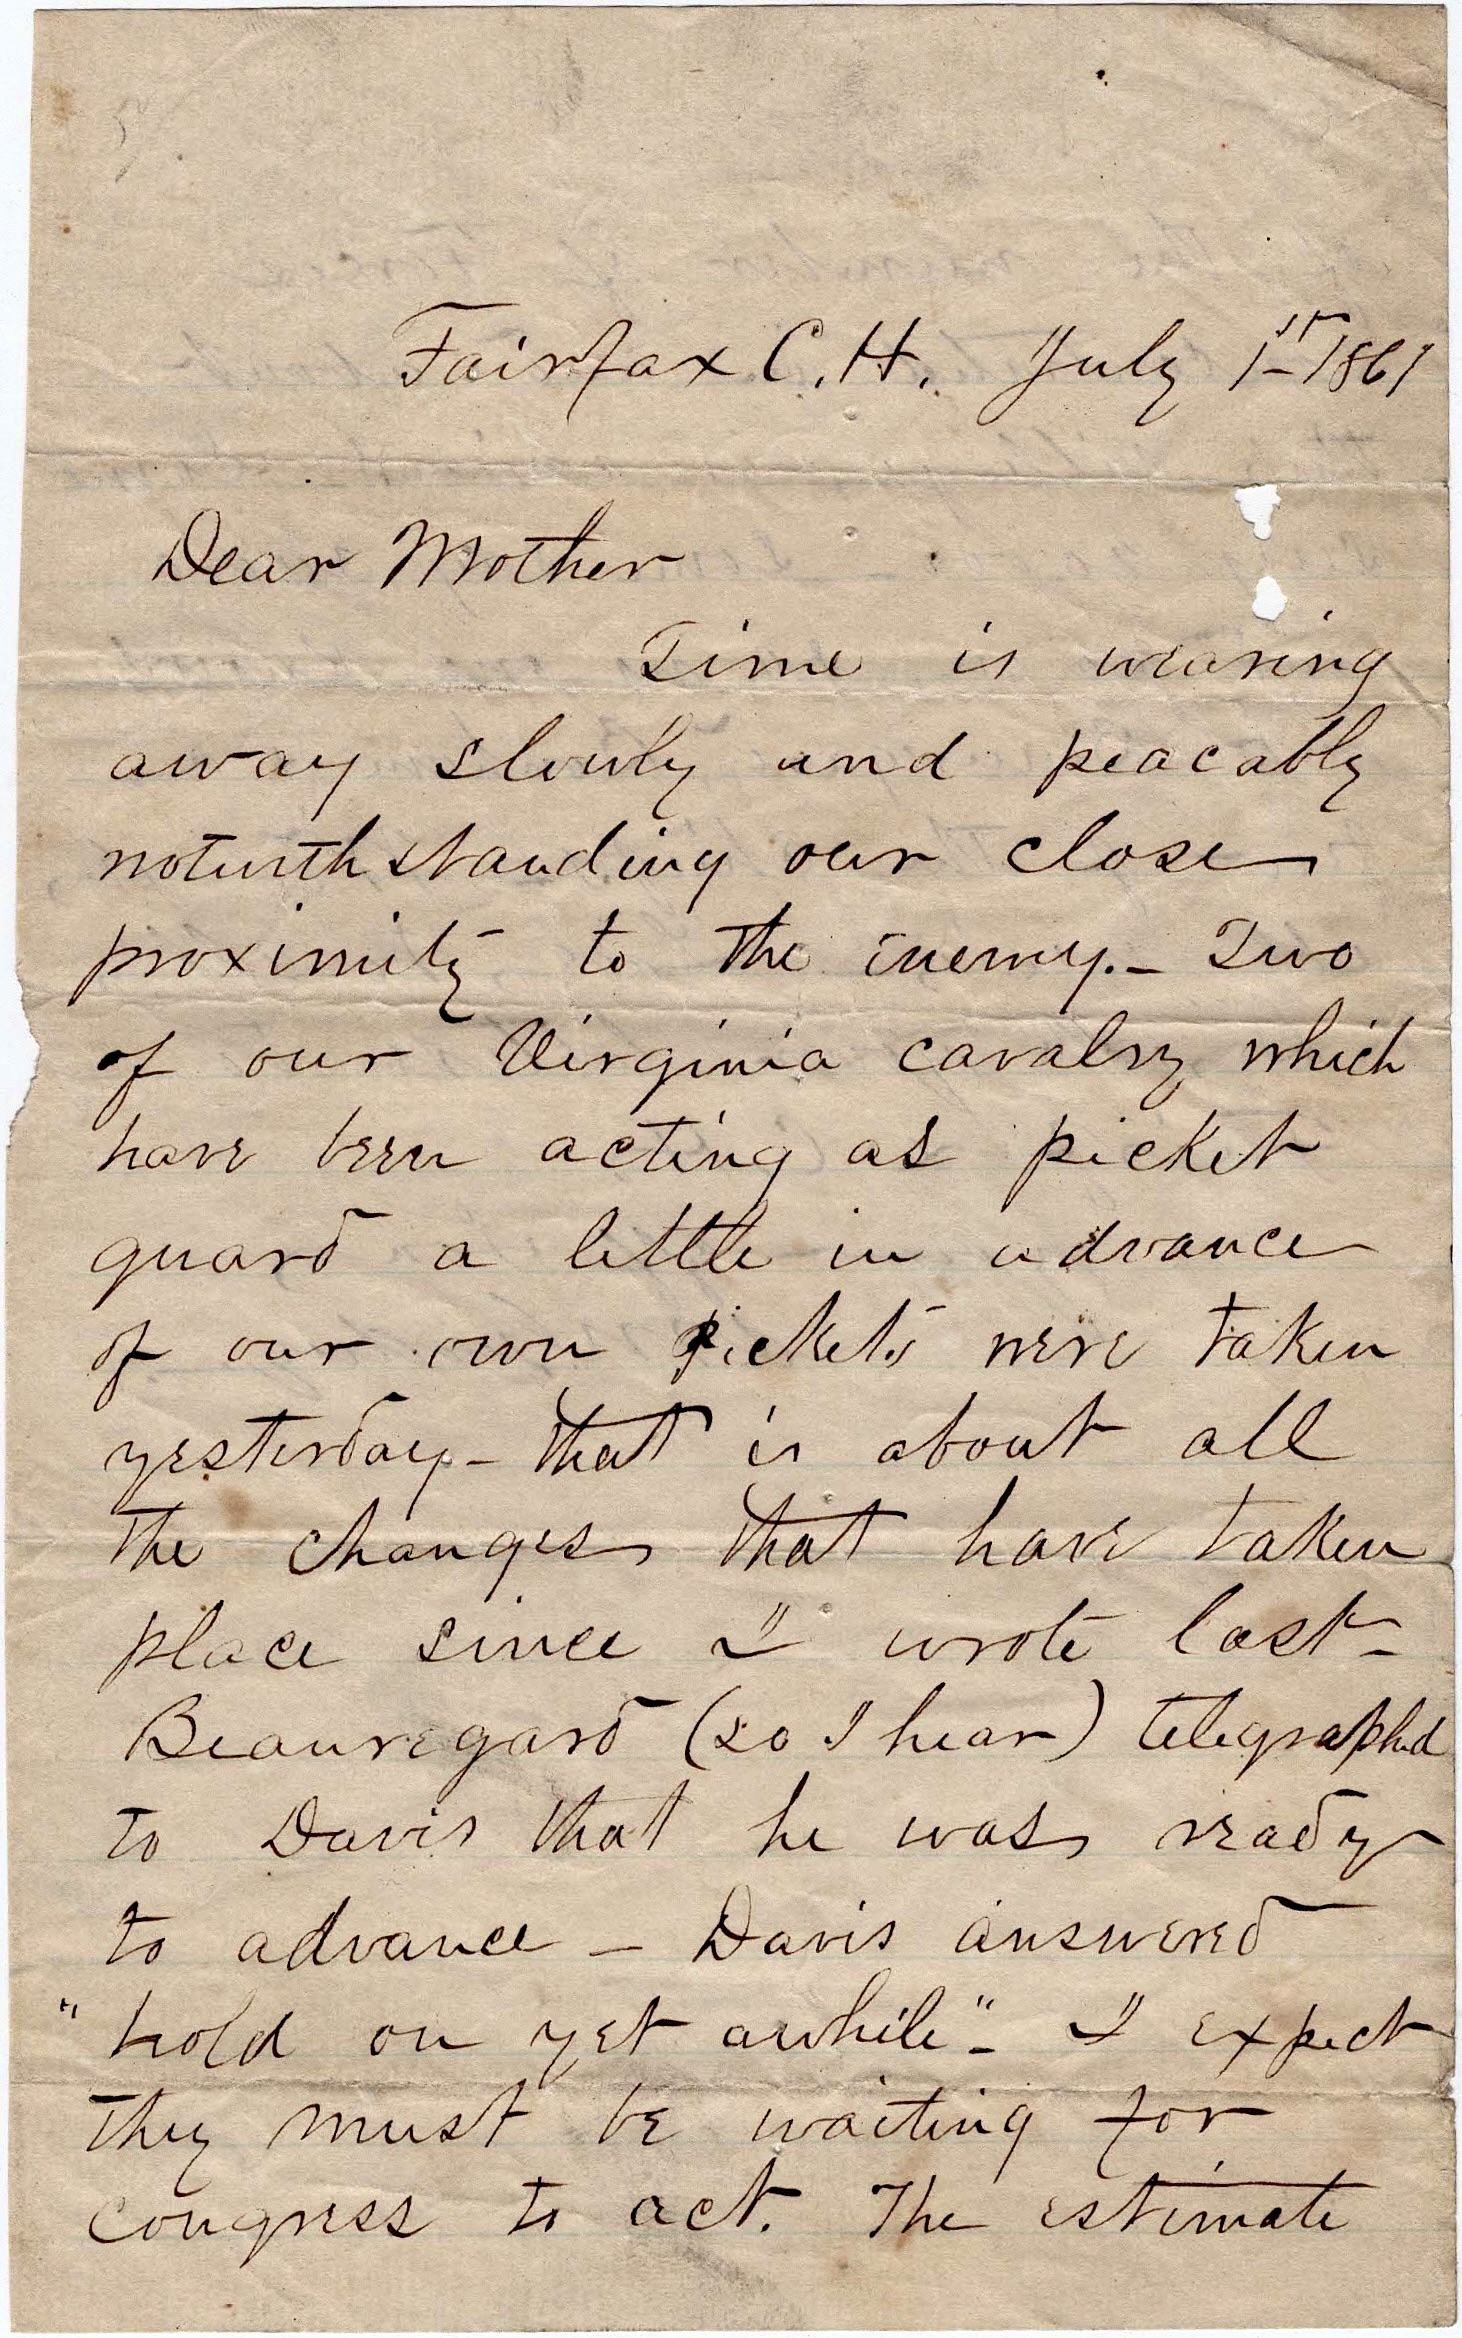 Fairfax C. H. July 1st 1861
Dear Mother
Time is wearing
away slowly and peacably
notwithstanding our close
proximity to the enemy. – Two
of our Virginia cavalry which
have been acting as picket
guard a little in advance
of our own pickets were taken
yesterday – that is about all
the changes that have taken
place since I wrote last –
Beauregard (so I hear) telegraphed
to Davis that he was ready
to advance – Davis answered
"hold on yet awhile" – I expect
they must be waiting for
congress to act. The estimate